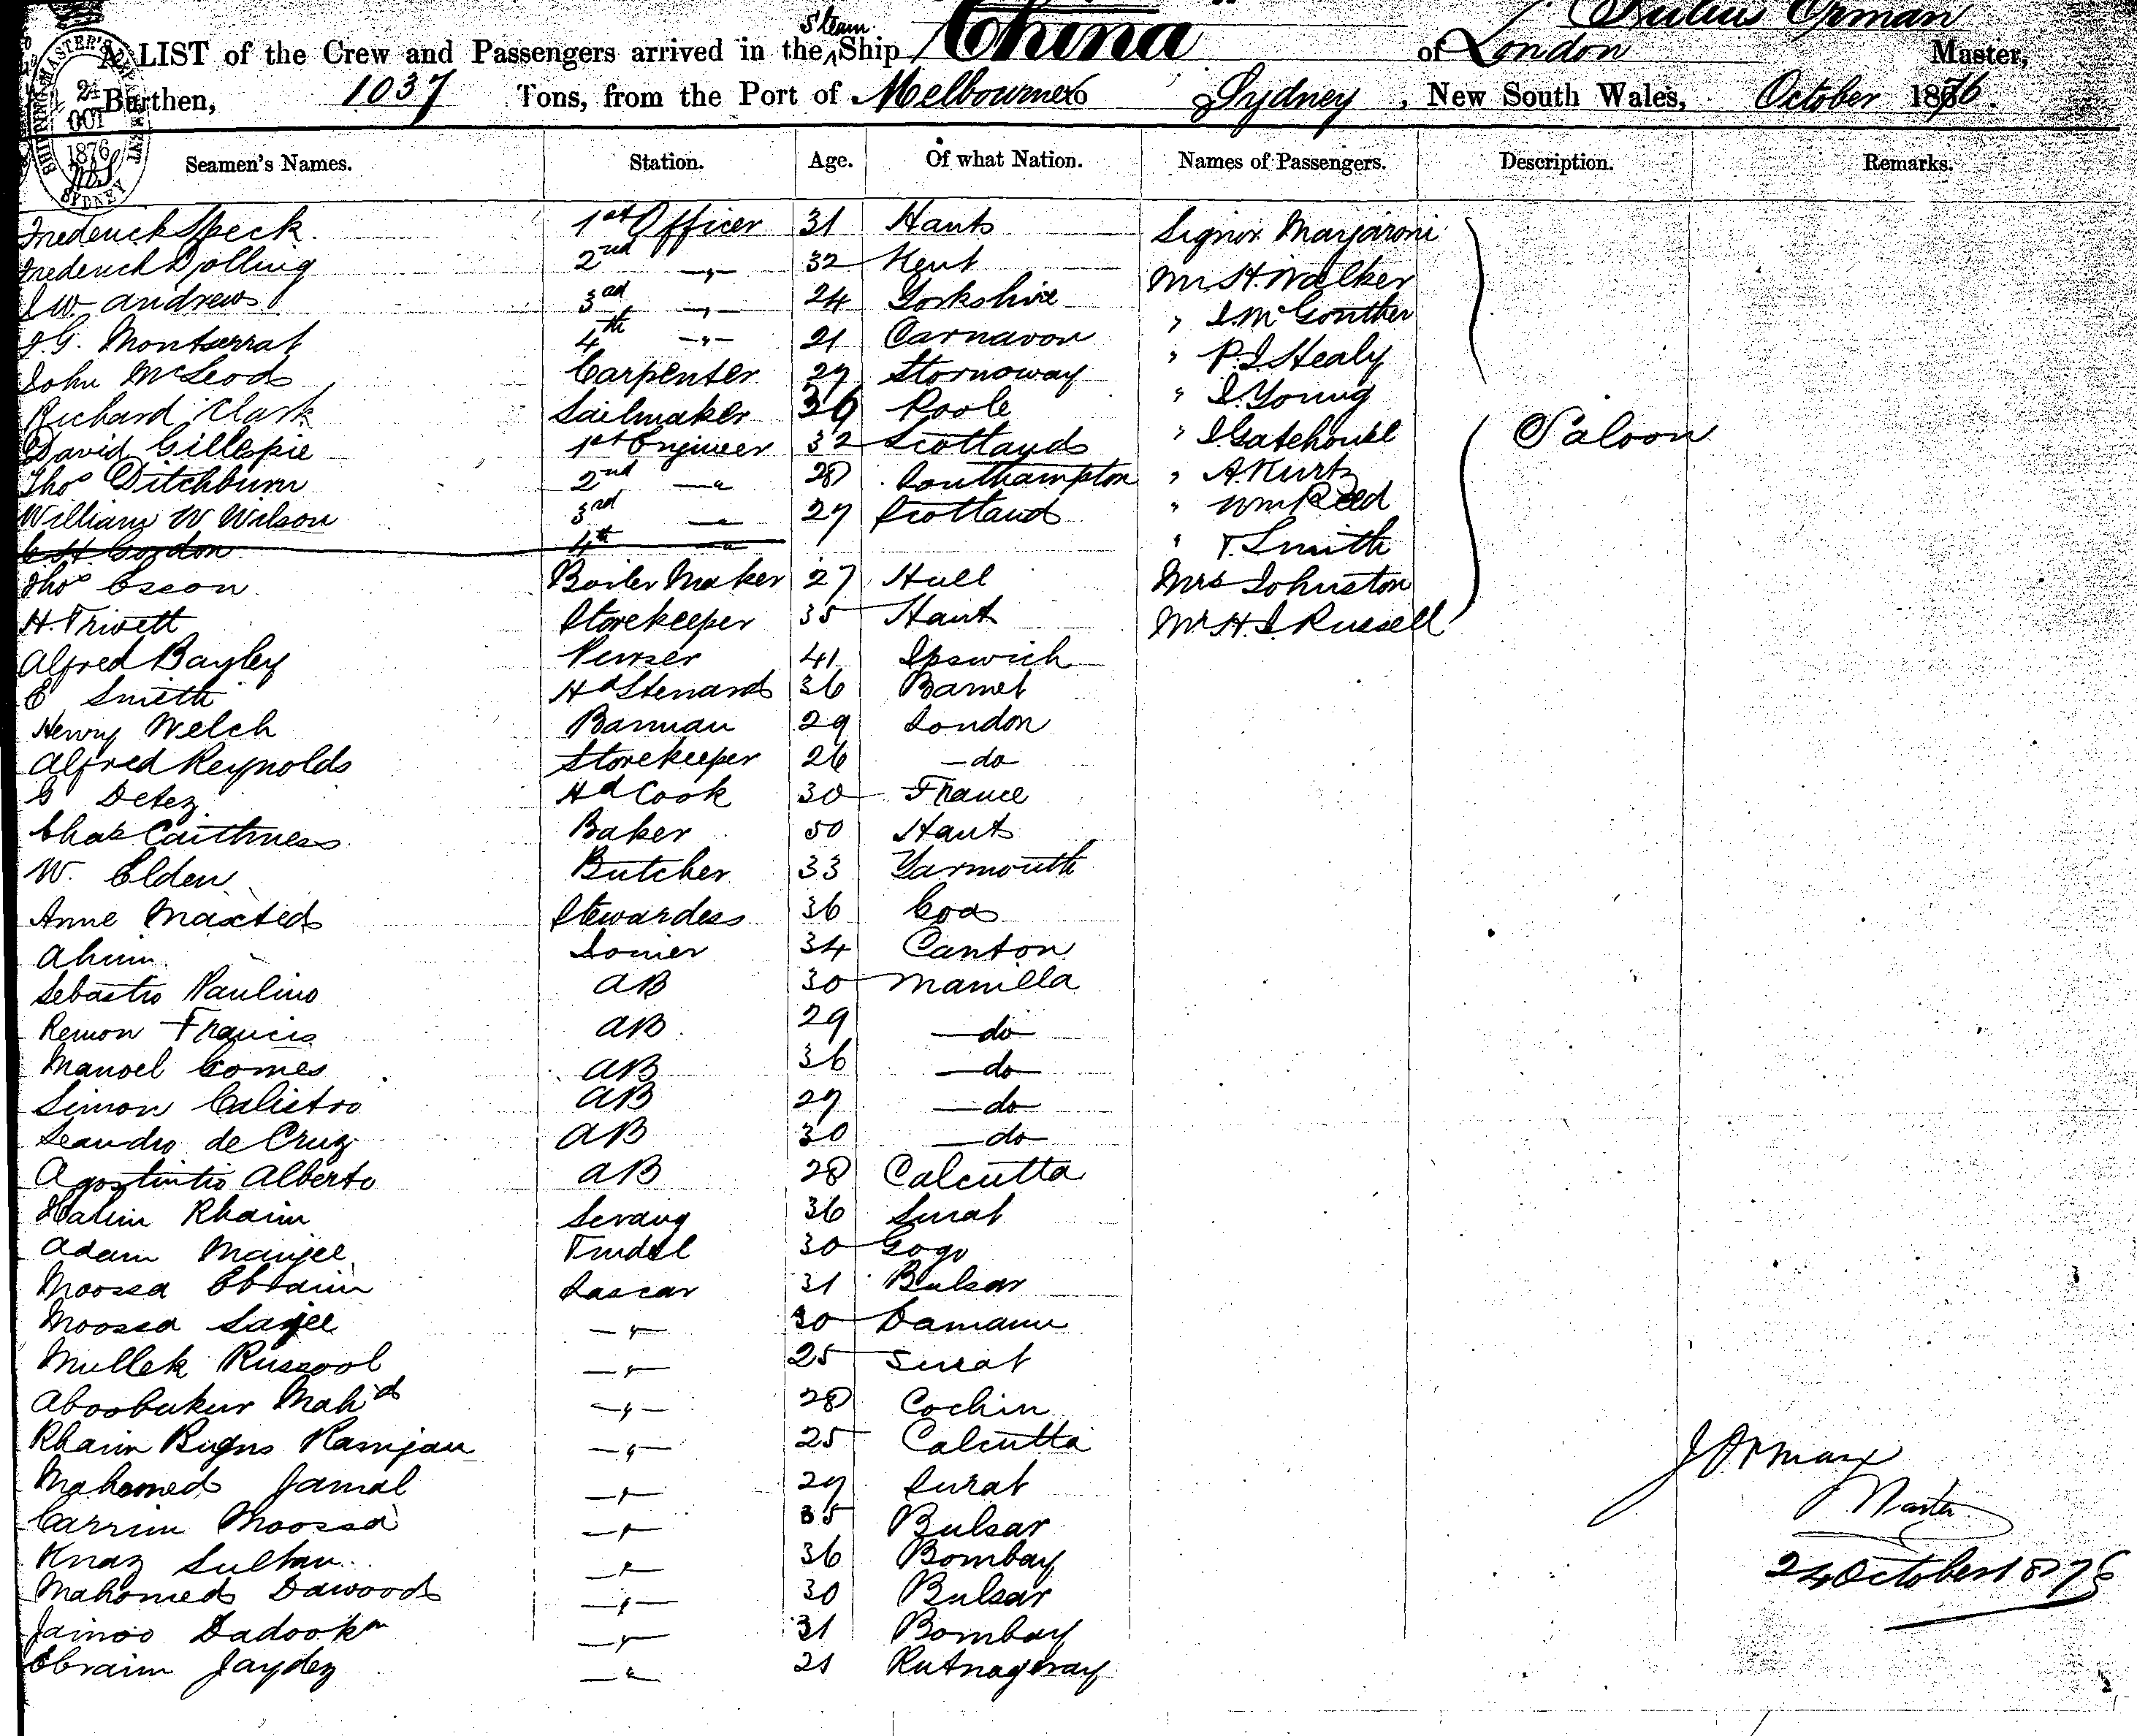 Julius Orman
A LIST of the Crew and Passengers arrived in the Steam Ship China of London Master,
Burthen, 1037 Tons, from the Port of Melbourne to Sydney, New South Wales, October 1876.
24 OCT 1876 SYDNEY
Seamen's Names. Station. Age. Of what Nation. Names of Passengers. Description. Remarks.
Frederick Speck 1st Officer 31 Hants Signor
Frederick Dolling 2nd " 32 Kent Mr H. Walker
J W. Andrews 3rd " 24 Yorkshire
J. G. Montserrat 4th " 21 Carnavon " P. J Healy
John McLeod Carpenter 29 Stornoway " J. Young
Richard Clark Sailmaker 36 Poole
David Gillespie 1st Engineer 32 Scotland " J Gatehouse Saloon
Thos Ditchburn 2nd " 28 Southampton " A. Kurtz
William W Wilson 3rd " 29 Scotland " Wm Reed
C. H. Gordon 4th " " T. Smith
Thos Esson Boiler Maker 27 Hull Mrs Johnston
H. Trivett Storekeeper 35 Hants Mr H. J Russell
Alfred Bayley Purser 41 Ipswich
E Smith Hd Steward 36 Barnet
Henry Welch Barman 29 London
Alfred Reynolds Storekeeper 26 do
G Detez Hd Cook 30 France
Chas Caithness Baker 50 Hants
W. Elden Butcher 33 Yarmouth
Anne Maxted Stewardess 36 Goa
Ahim 34 Canton
Sebastio Paulino AB 30 Manilla
Remon Francis AB 29 do
Manoel Gomes AB 36 do
Simon Calistro AB 29 do
Leandro de Cruz AB 30 do
Agostintio Alberto AB 28 Calcutta
Halim Rhaim Serang 36 Surat
Adam Manjee Tindel 30 Gogo
Moossa Ebraim Lascar 31 Bulsar
Moossa " 30 Damaun
Mullek Russool " 25 Surat
Aboobukur Mahd " 28 Cochin
Rhaim Ramjan " 25 Calcutta
Mahomed Jamal " 29 Surat
Carrim Moossa " 35 Bulsar
Sultan " 36 Bombay
Mahomed Dawood " 30 Bulsar
Jainoo " 31 Bombay
Ebraim " 21 Rutnageray
J Orman
Master
24 October 1876